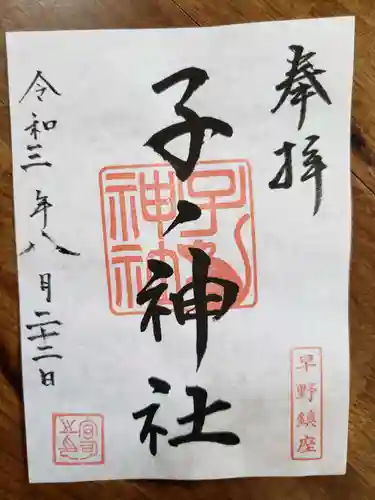 奉拝
子ノ神社
早野鎮座
令和三年八月二十二日